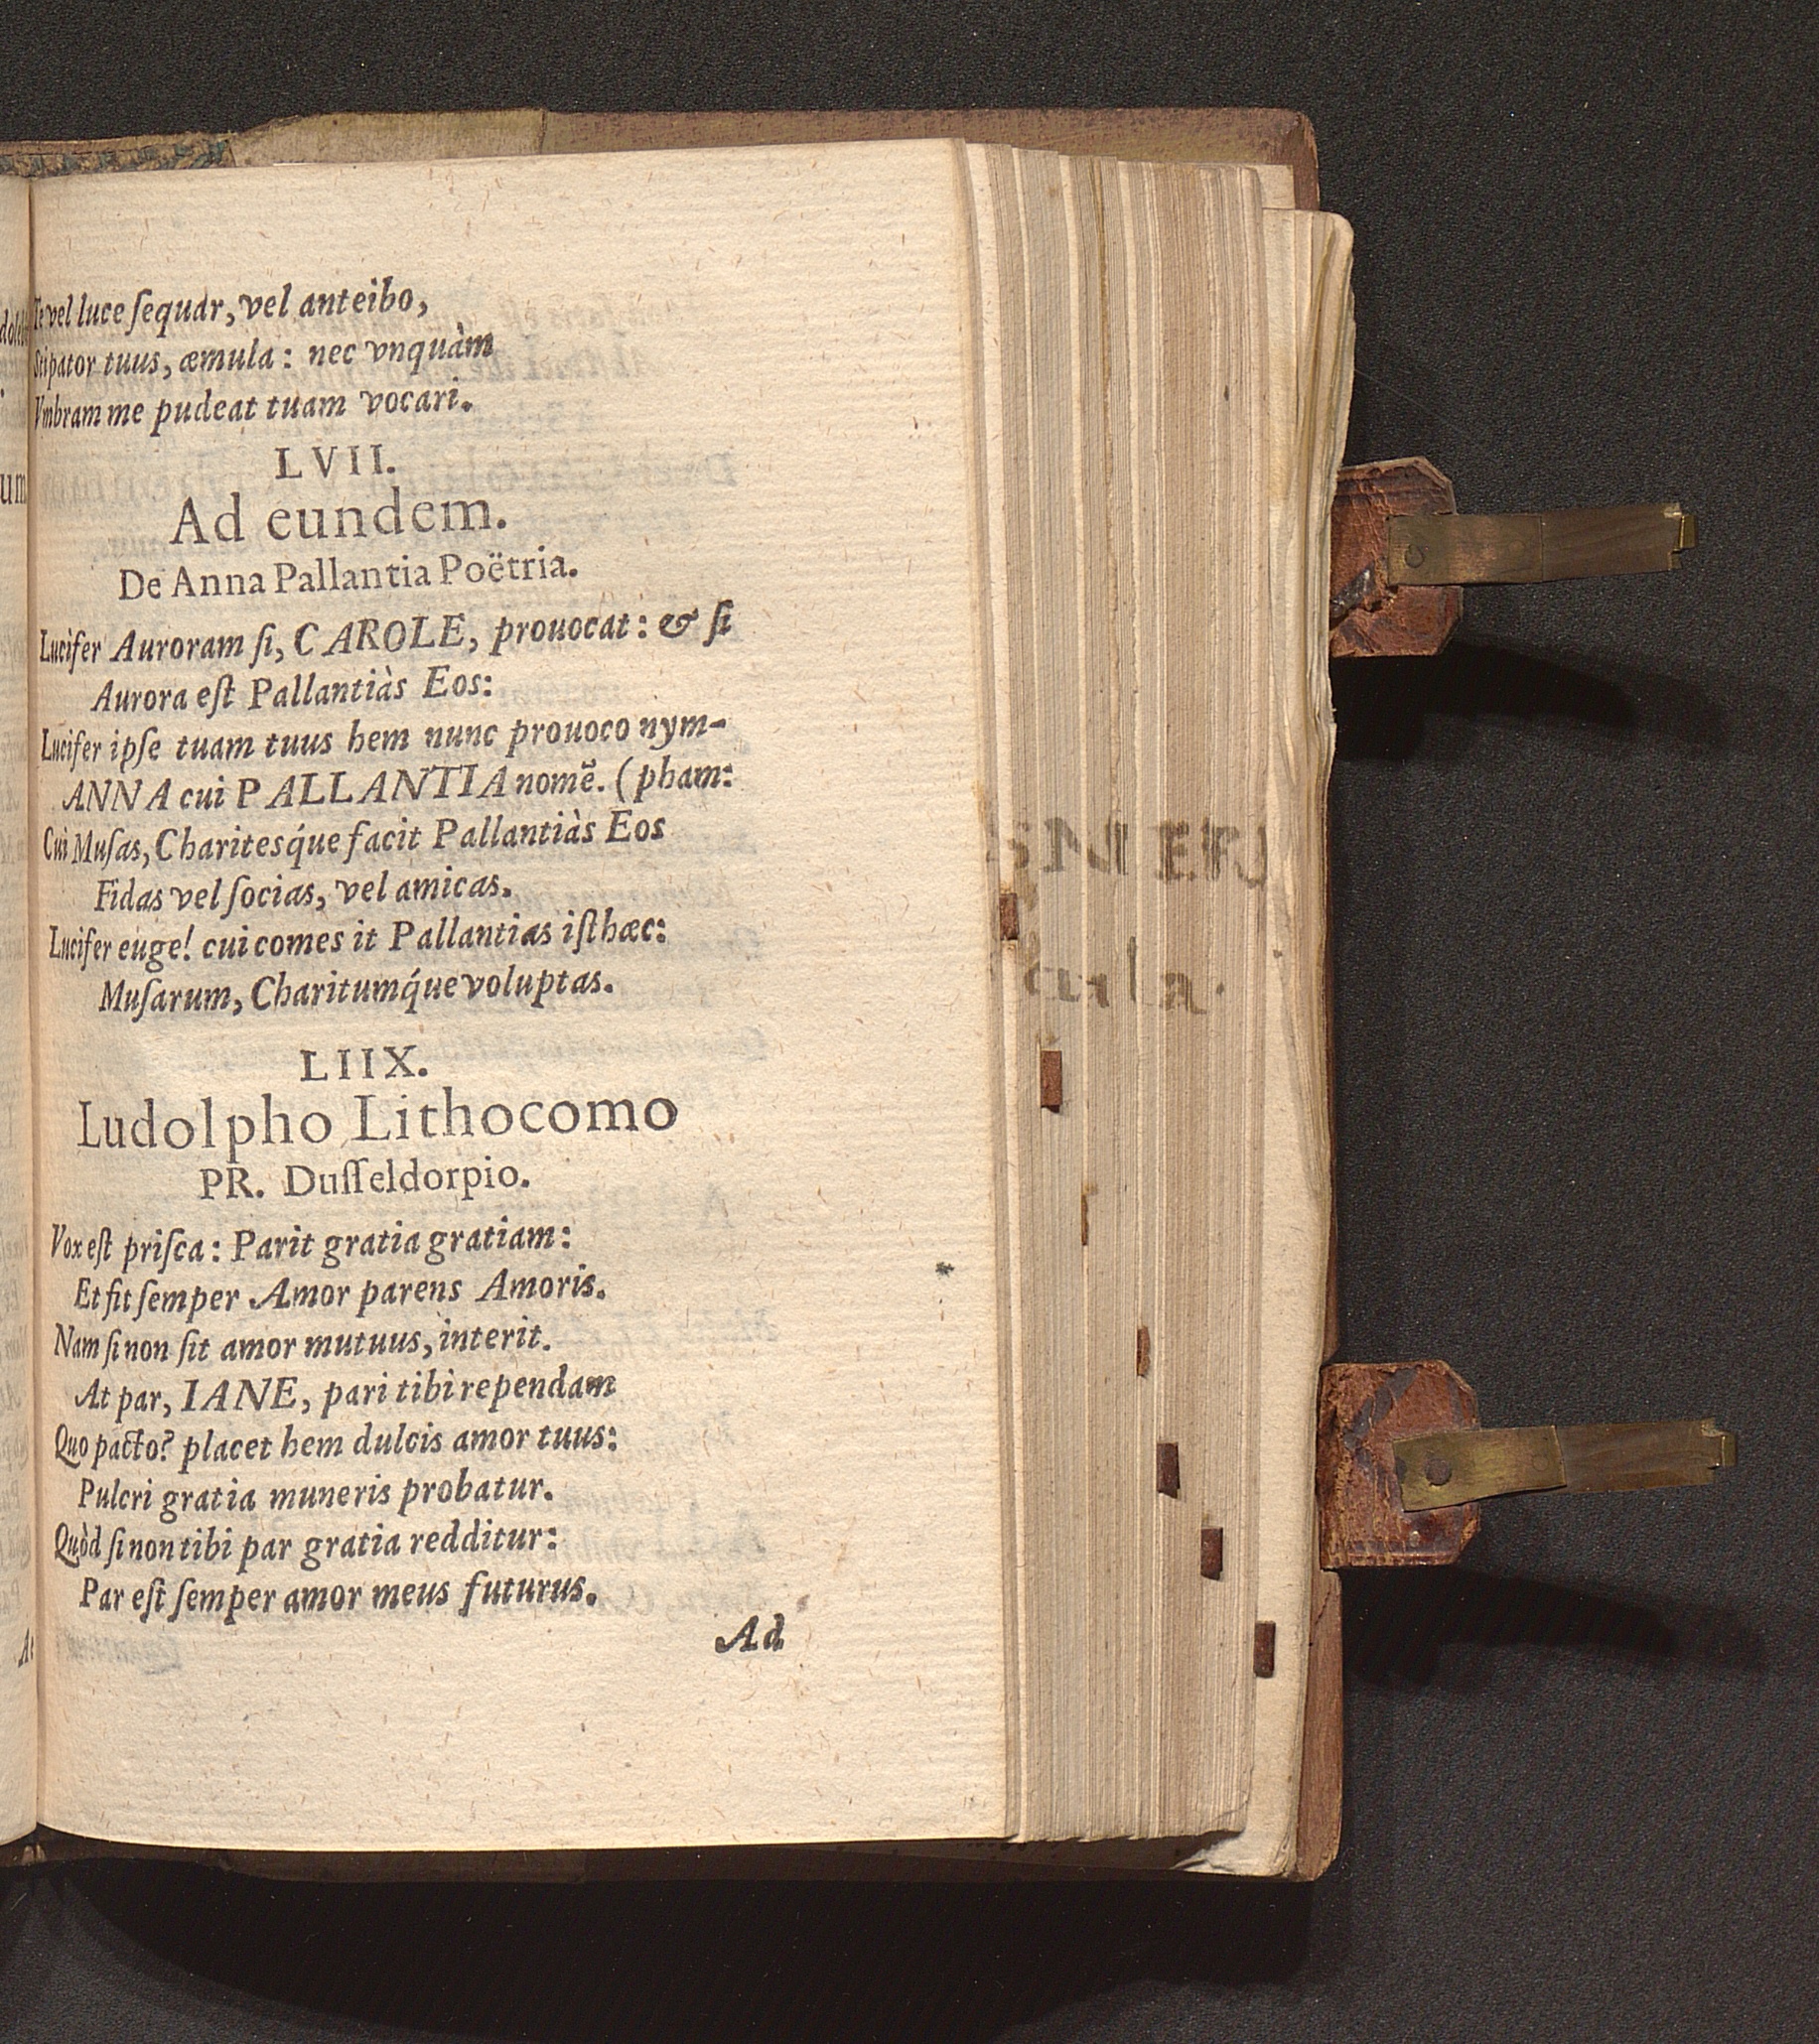 Te vel luce ſequar, vel anteibo,
Stipator tuus, æmula: nec vnquàm
Vmbram me pudeat tuam vocari.
LVII.
Ad eundem.
De Anna Pallantia Poëtria.
Lucifer Auroram ſi, CAROLE, prouocat: & ſi
Aurora eſt Pallantiàs Eos:
Lucifer ipſe tuam tuus hem nunc prouoco nym-
ANNA cui PALLANTIA nomē. (pham:
Cui Muſas, Charitesq́ue facit Pallantiàs Eos
Fidas vel ſocias, vel amicas.
Lucifer euge! cui comes it Pallantias iſthæc:
Muſarum, Charitumq́ue voluptas.
LIIX.
Ludolpho Lithocomo
PR. Duſſeldorpio.
Vox eſt priſca: Parit gratia gratiam:
Et fit ſemper Amor parens Amoris.
Nam ſi non ſit amor mutuus, interit.
At par, IANE, pari tibi rependam
Quo pacto? placet hem dulcis amor tuus:
Pulcri gratia muneris probatur.
Quòd ſi non tibi par gratia redditur:
Par eſt ſemper amor meus futurus.
Ad